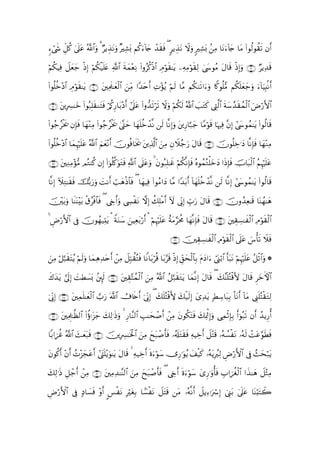 أَن تَقُولُوا۟ مَا جَآءَنَا مِنۢ بَشِيرٍ وَلَا نَذِيرٍ ۖ فَقَدْ جَآءَكُم بَشِيرٌ وَنَذِيرٌ ۗ وَٱللَّهُ عَلَىٰ كُلِّ شَىْءٍ
قَدِيرٌ ﴿١٩﴾ وَإِذْ قَالَ مُوسَىٰ لِقَوْمِهِۦ يَـٰقَوْمِ ٱذْكُرُوا۟ نِعْمَةَ ٱللَّهِ عَلَيْكُمْ إِذْ جَعَلَ فِيكُمْ
أَنۢبِيَآءَ وَجَعَلَكُم مُّلُوكًا وَءَاتَىٰكُم مَّا لَمْ يُؤْتِ أَحَدًا مِّنَ ٱلْعَـٰلَمِينَ ﴿٢٠﴾ يَـٰقَوْمِ ٱدْخُلُوا۟
ٱلْأَرْضَ ٱلْمُقَدَّسَةَ ٱلَّتِى كَتَبَ ٱللَّهُ لَكُمْ وَلَا تَرْتَدُّوا۟ عَلَىٰٓ أَدْبَارِكُمْ فَتَنقَلِبُوا۟ خَـٰسِرِينَ ﴿٢١﴾
قَالُوا۟ يَـٰمُوسَىٰٓ إِنَّ فِيهَا قَوْمًا جَبَّارِينَ وَإِنَّا لَن نَّدْخُلَهَا حَتَّىٰ يَخْرُجُوا۟ مِنْهَا فَإِن يَخْرُجُوا۟
مِنْهَا فَإِنَّا دَٰخِلُونَ ﴿٢٢﴾ قَالَ رَجُلَانِ مِنَ ٱلَّذِينَ يَخَافُونَ أَنْعَمَ ٱللَّهُ عَلَيْهِمَا ٱدْخُلُوا۟
عَلَيْهِمُ ٱلْبَابَ فَإِذَا دَخَلْتُمُوهُ فَإِنَّكُمْ غَـٰلِبُونَ ۚ وَعَلَى ٱللَّهِ فَتَوَكَّلُوٓا۟ إِن كُنتُم مُّؤْمِنِينَ ﴿٢٣﴾
قَالُوا۟ يَـٰمُوسَىٰٓ إِنَّا لَن نَّدْخُلَهَآ أَبَدًا مَّا دَامُوا۟ فِيهَا ۖ فَٱذْهَبْ أَنتَ وَرَبُّكَ فَقَـٰتِلَآ إِنَّا
هَـٰهُنَا قَـٰعِدُونَ ﴿٢٤﴾ قَالَ رَبِّ إِنِّى لَآ أَمْلِكُ إِلَّا نَفْسِى وَأَخِى ۖ فَٱفْرُقْ بَيْنَنَا وَبَيْنَ
ٱلْقَوْمِ ٱلْفَـٰسِقِينَ ﴿٢٥﴾ قَالَ فَإِنَّهَا مُحَرَّمَةٌ عَلَيْهِمْ ۛ أَرْبَعِينَ سَنَةً ۛ يَتِيهُونَ فِى ٱلْأَرْضِ ۚ
فَلَا تَأْسَ عَلَى ٱلْقَوْمِ ٱلْفَـٰسِقِينَ ﴿٢٦﴾
۞ وَٱتْلُ عَلَيْهِمْ نَبَأَ ٱبْنَىْ ءَادَمَ بِٱلْحَقِّ إِذْ قَرَّبَا قُرْبَانًا فَتُقُبِّلَ مِنْ أَحَدِهِمَا وَلَمْ يُتَقَبَّلْ مِنَ
ٱلْـَٔاخَرِ قَالَ لَأَقْتُلَنَّكَ ۖ قَالَ إِنَّمَا يَتَقَبَّلُ ٱللَّهُ مِنَ ٱلْمُتَّقِينَ ﴿٢٧﴾ لَئِنۢ بَسَطتَ إِلَىَّ يَدَكَ
لِتَقْتُلَنِى مَآ أَنَا۠ بِبَاسِطٍ يَدِىَ إِلَيْكَ لِأَقْتُلَكَ ۖ إِنِّىٓ أَخَافُ ٱللَّهَ رَبَّ ٱلْعَـٰلَمِينَ ﴿٢٨﴾ إِنِّىٓ
أُرِيدُ أَن تَبُوٓأَ بِإِثْمِى وَإِثْمِكَ فَتَكُونَ مِنْ أَصْحَـٰبِ ٱلنَّارِ ۚ وَذَٰلِكَ جَزَٰٓؤُا۟ ٱلظَّـٰلِمِينَ ﴿٢٩﴾
فَطَوَّعَتْ لَهُۥ نَفْسُهُۥ قَتْلَ أَخِيهِ فَقَتَلَهُۥ فَأَصْبَحَ مِنَ ٱلْخَـٰسِرِينَ ﴿٣٠﴾ فَبَعَثَ ٱللَّهُ غُرَابًا
يَبْحَثُ فِى ٱلْأَرْضِ لِيُرِيَهُۥ كَيْفَ يُوَٰرِى سَوْءَةَ أَخِيهِ ۚ قَالَ يَـٰوَيْلَتَىٰٓ أَعَجَزْتُ أَنْ أَكُونَ
مِثْلَ هَـٰذَا ٱلْغُرَابِ فَأُوَٰرِىَ سَوْءَةَ أَخِى ۖ فَأَصْبَحَ مِنَ ٱلنَّـٰدِمِينَ ﴿٣١﴾ مِنْ أَجْلِ ذَٰلِكَ
كَتَبْنَا عَلَىٰ بَنِىٓ إِسْرَٰٓءِيلَ أَنَّهُۥ مَن قَتَلَ نَفْسًۢا بِغَيْرِ نَفْسٍ أَوْ فَسَادٍ فِى ٱلْأَرْضِ